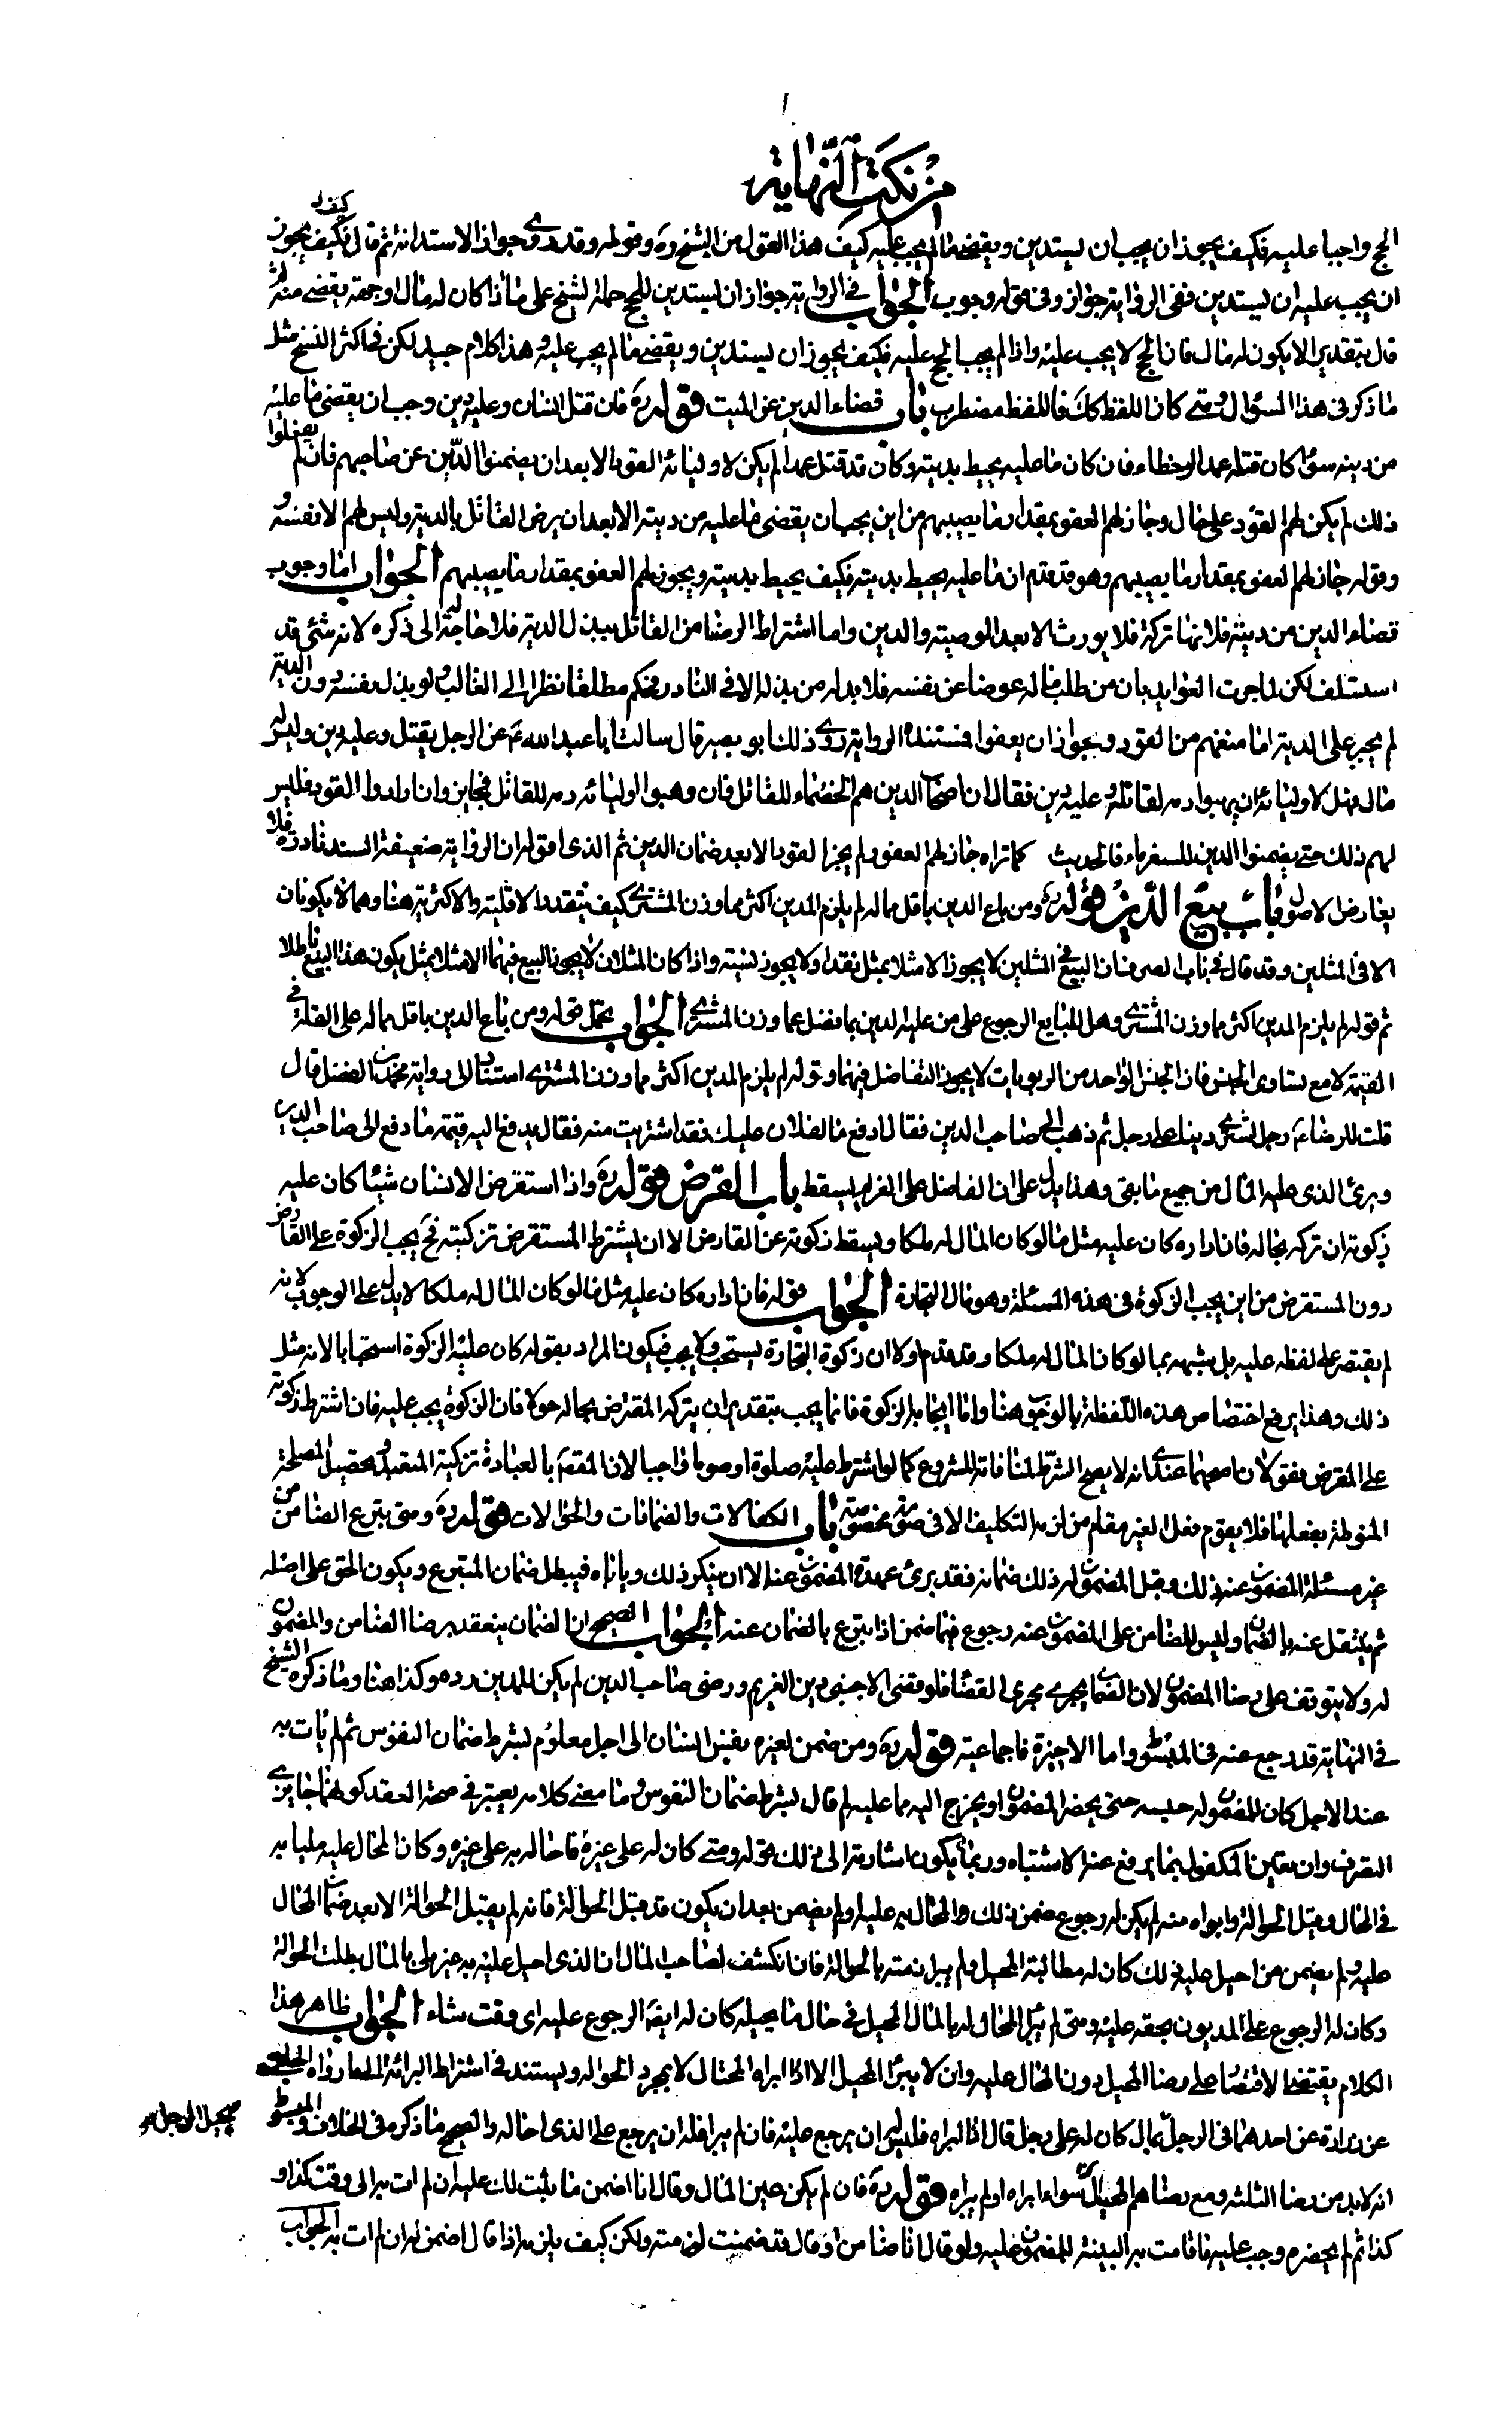 من نكت النهاية
الحج واجبا عليه فكيف يجوز ان يجب ان يستدين ويقضى ما لم يجب عليه كيف هذا القول من الشيخ ره وقوله وقد روى جواز الاستدانة ثم قال فكيف يجوز
ان يجب عليه ان يستدين ففى الرواية جواز وفى قوله وجوب الجواب فى الرواية جواز ان يستدين للحج حملة الشيخ على ما اذا كان له مال او جهة يقضى منه ثم
قال بتقدير الا يكون له مال فان الحج لا يجب عليه واذا لم يجب الحج عليه فكيف يجوز ان يستدين ويقضى ما لم يجب عليه وهذا كلام جيد لكن فى اكثر النسخ مثل
ما ذكر فى هذا السؤال ومتى كان اللفظ كك فاللفظ مضطرب باب قضاء الدين عن الميت قوله ره فان قتل انسان وعليه دين وجب ان يقضى ما عليه
من ديته سواء كان قتله عمدا او خطاء فان كان ما عليه يحيط بديته وكان قد قتل عمدا لم يكن لاوليائه القود الا بعد ان يضمنوا الدين عن صاحبهم فان لم يفعلوا
ذلك لم يكن لهم القود على حال وجاز لهم العفو بمقدار ما يصيبهم من اين يجب ان يقضى ما عليه من ديته الا بعد ان يرضى القاتل بالدية وليس لهم الا نفسه و
وقوله جاز لهم العفو بمقدار ما يصيبهم وهو قد قدم ان ما عليه يحيط بديته فكيف يحيط بديته ويجوز لهم العفو بمقدار ما يصيبهم الجواب اما وجوب
قضاء الدين من ديته فلانها تركة فلا يورث الا بعد الوصية والدين واما اشتراط الرضا من القاتل ببذل الدية فلا حاجة الى ذكره لانه شئ قد
اسلف لكن لما جرت العوايد بان من طلب ماله عوضا عن نفسه فلا بد له من بذله الا فى النادر فحكم مطلقا نظرا الى الغالب ولو بذل نفسه دون الدية
لم يجبر على الدية اما منعهم من القود وجواز ان يعفوا فمستنده الرواية روى ذلك ابو بصير قال سالت ابا عبد الله ع عن الرجل يقتل وعليه دين وليس له
مال فهل لاوليائه ان يهبوا دمه لقاتله وعليه دين فقال ان اصحاب الدين هم الخصماء للقاتل فان وهبوا اولياؤه دمه للقاتل فجايز وان ارادوا القود فليس
لهم ذلك حتى يضمنوا الدين للغرماء فالحديث كما تراه جاز لهم العفو ولم يجز القود الا بعد ضمان الدين ثم الذى اقوله ان الرواية ضعيفة السند نادرة فلا
يعارض الاصول باب بيع الدين قوله ره ومن باع الدين باقل مما له لم يلزم المدين اكثر مما وزن المشترى كيف يتقدر الاقلية والاكثرية هنا وهما لا يكونان
الا فى المثلين وقد قال فى باب الصرف ان البيع فى المثلين لا يجوز الا مثلا بمثل نقدا ولا يجوز نسية واذا كان المثلان لا يجوز البيع فيهما الا مثلا بمثل يكون هذا البيع باطلا
ثم قوله لم يلزم المدين اكثر مما وزن المشترى وهل للبايع الرجوع على من عليه الدين بما يفضل عما وزن المشترى الجواب يحمل قوله ومن باع الدين باقل مما له على القلة فى
القيمة لا مع تساوى الجنس فان الجنس الواحد من الربويات لا يجوز التفاضل فيهما وقوله لم يلزم المدين اكثر مما وزن المشترى استنادا الى رواية محمد بن الفضل قال
قلت للرضا ع رجل اشترى دينا على رجل ثم ذهب الى صاحب الدين فقال ادفع ما لفلان عليك فقد اشتريت منه فقال يدفع اليه قيمة ما دفع الى صاحب الدين
وبرئ الذى عليه المال من جميع ما بقى وهذا يدل على ان الفاضل على الغريم يسقط باب القرض قوله ره واذا استقرض الانسان شيئا كان عليه
زكوته ان تركه بحاله فان اداره كان عليه مثل ما لو كان المال له ملكا ويسقط زكوته عن القارض الا ان يشترط المستقرض تزكيته فح يجب الزكوة على القارض
دون المستقرض من اين يجب الزكوة فى هذه المسئلة وهو مال التجارة الجواب قوله فان اداره كان عليه مثل ما لو كان المال له ملكا لا يدل على الوجوب لانه
لم يقتصر على لفظه عليه بل شبهه بما لو كان المال له ملكا وقد قدم اولا ان زكوة التجارة يستحب ولا يجب فيكون المراد بقوله كان عليه الزكوة استحبابا لانه مثل
ذلك وهذا يرفع اختصاص هذه اللفظة بالوجوب هنا واما ايجابه الزكوة فانما يجب بتقدير ان يتركه المقترض بحاله حولا فان الزكوة يجب عليه فان اشترط زكوته
على المقرض فقولان اصحهما عندى انه لا يصح الشرط لمنافاته المشروع كما لو اشترط عليه صلوة او صوما واجبا لان المقصد بالعبادة تزكية المتعبد وتحصيل المصلحة
المنوطة بفعلها فلا يقوم فعل الغير مقام من لزمه التكليف الا فى صورة مخصوصة باب الكفالات والضمانات والحوالات قوله ره ومتى تبرع الضامن من
غير مسئلة المضمون عنه ذلك وقبل المضمون له ذلك ضمانه فقد برئ عهدة المضمون عنه الا ان ينكر ذلك ويا باه فيبطل ضمان المتبرع ويكون الحق على اصله
ثم ينتقل عنه بالضمان وليس للضامن على المضمون عنه رجوع فيما ضمن اذا تبرع بالضمان عنه الجواب الصحيح ان الضمان ينعقد برضا الضامن والمضمون
له ولا يتوقف على رضا المضمون لان الضمان يجرى مجرى القضا فلو قضى الاجنبى دين الغريم ورضى صاحب الدين لم يكن للمدين رده وكذا هنا وما ذكره الشيخ
فى النهاية قد رجع عنه فى المبسوط واما الاخيرة فاجماعية قوله ره ومن ضمن لغيره نفس انسان الى اجل معلوم بشرط ضمان النفوس ثم لم يات به
عند الاجل كان للمضمون له حبسه حتى يحضر المضمون او يخرج اليه مما عليه لم قال بشرط ضمان النفوس وما معنى كلامه يعتبر فى صحة العقد كونهما جايزى
التصرف وان تعين المكفول بما يرفع عنه الاشتباه وربما يكون اشارة الى ذلك قوله ومتى كان له على غيره فاحاله به على غيره وكان المحال عليه مليا به
فى الحال وقبل الحوالة وابراه منه لم يكن له رجوع ضمن ذلك المحال به عليه او لم يضمن بعد ان يكون قد قبل الحوالة فانه لم يقبل الحوالة الا بعد ضمان المحال
عليه ولم يضمن من احيل عليه ذلك كان له مطالبة المحيل ولم يبرا ذمته بالحوالة فان انكشف لصاحب المال ان الذى احيل عليه به غير ملى بالمال بطلت الحوالة
وكان له الرجوع على المديون بحقه عليه ومتى لم يبرا المحال له بالمال المحيل فى حال ما يحيله كان له ايضا الرجوع عليه اى وقت شاء الجواب ظاهر هذا
الكلام يقتضى الاقتصار على رضا المحيل دون المحال عليه وان لا يبرا المحيل الا اذا ابراه المحتال لا بمجرد الحوالة ويستند فى اشتراط البرائة الى ما رواه الحلبى
عن زرارة عن احدهما فى الرجل يحيل الرجل بمال كان له على رجل قال اذا ابراه فليس له ان يرجع عليه فان لم يبرا فله ان يرجع على الذى احاله والصحيح ما ذكره فى الخلاف والمبسوط
انه لابد من رضا الثلثة ومع رضاهم المحيل سواء ابراه او لم يبراه قوله ره فان لم يكن عين المال وقال انا اضمن ما يثبت لك عليه ان لم ات به الى وقت كذا و
كذا ثم لم يحضره وجب عليه ما قامت به البينة للمضمون عليه ولو قال انا ضامن او قال قد ضمنت لزمته ولكن كيف يلزمه اذا قال اضمن له ان لم ات به الجواب